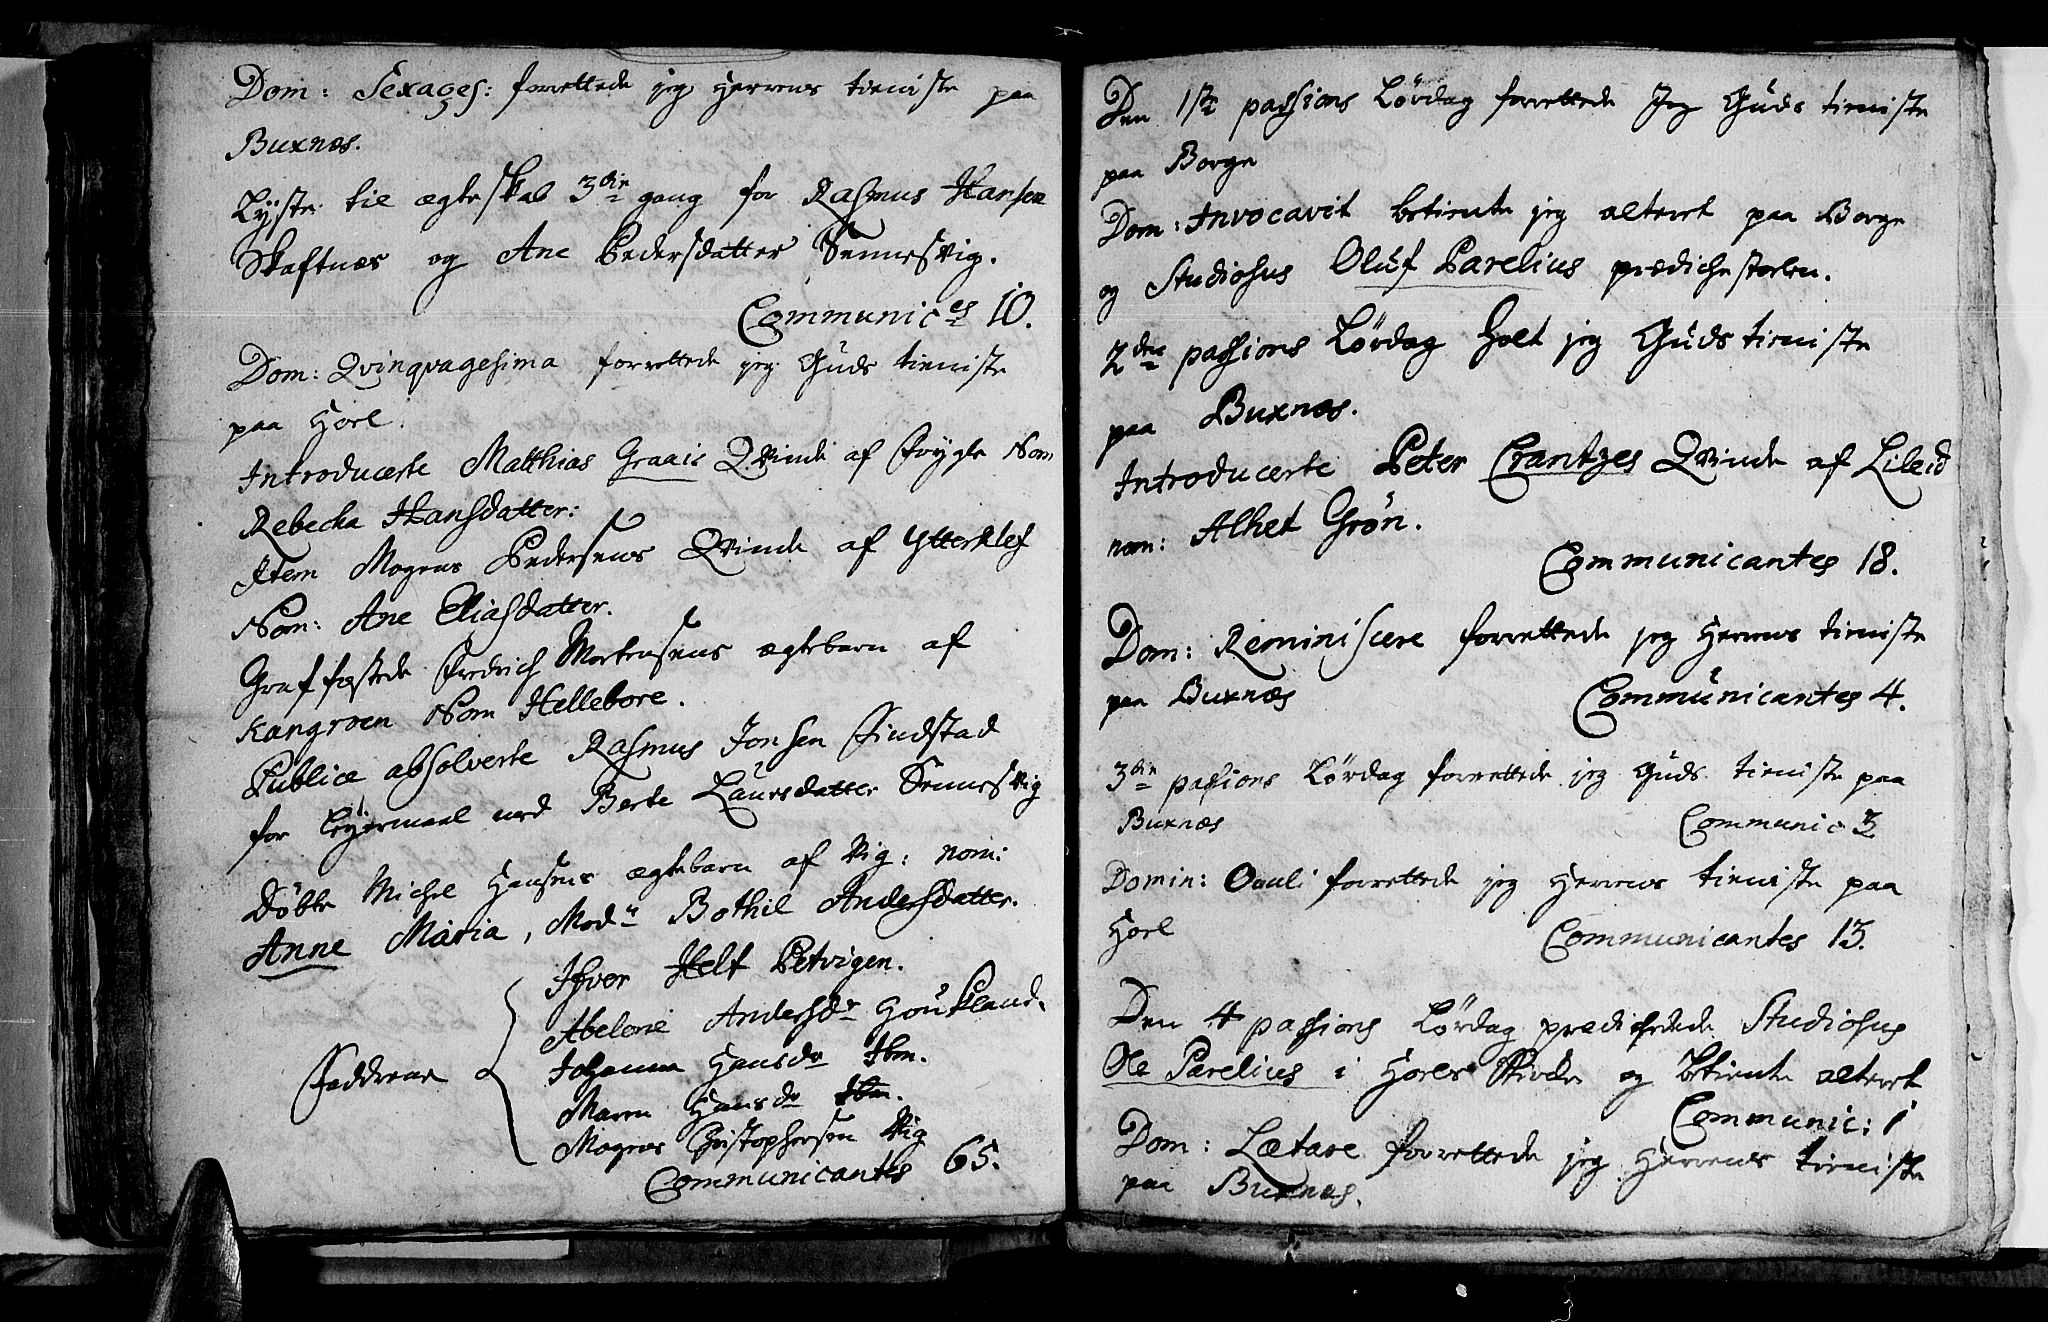 Dom: Sexages: forrettede jeg Herrens tieniste paa
Buxnæs.
Lyste til ægteskab 3die gang for Rasmus Hansen
Skaftnæs og Ane Pedersdatter Sennesvig.
Communices 10.
Dom: Qvinqvagesima forrettede jeg Guds tieniste
paa Hoel.
Introducerte Matthias Graais Qvinde af Frygle Nom
Rebecka Hansdatter:
Item Mogens Pedersens Qvinde af Ytterklef
Nom: Ane Eliasdatter.
Graffæstede Fredrich Mortensens ægtebarn af
Kangroen Nom Hellebore.
Publice absolverte Rasmus Jonsen Findstad
for Leyermaal med Berte Laursdatter Sennesvig
Döbte Michel Hansens ægtebarn af Vig: nom:
Anne Maria, Modn Bothil Andersdatter.
Ifver Helt Petvigen.
Abelone Andersdr Goukland.
Johanna Hansdr Ibm.
Faddrene
Maren Hansdr Ibm.
Mogens Christophersen Vig
Communicantes 65.
Den 1ste passions Lövdag forrettede Jeg Guds tieniste
paa Borge
Dom: Invocavit betiente jeg alteret paa Borge
og Studiosus Oluf Parelius prædichestolen.
2den passions Lövdag holt jeg Guds tieniste
paa Buxnæs.
Introducerte Peter Crantzes Qvinde af Lileid
nom: Alhet Grön.
Communicantes 18.
Dom: Reminiscere forrettede jeg Herrens tieniste
paa Buxnæs Communicantes 4.
3die passions Lövdag forrettede jeg Guds tieniste paa
Buxnæs Communic 3
Domin: Oculi forrettede jeg Herrens tieniste paa
Hoel Communicantes 13.
Den 4 passions Lövdag prædichede Studiosus
Ole Parelius i Hoels Kirche og betiente alteret
Communic: 1
Dom: Lætare forrettede jeg Herrens tieniste
paa Buxnæs.